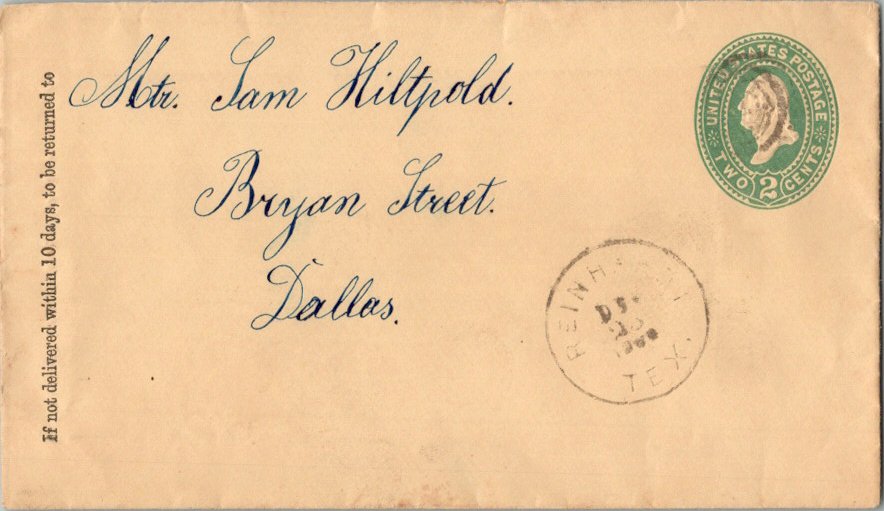 If not delivered within 10 days, to be returned to
Mr. Sam Hiltpold.
Bryan Street.
Dallas.
UNITED STATES POSTAGE
TWO 2 CENTS
TEX.